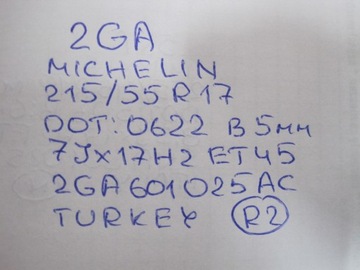 2GA
MICHELIN
215/55 R 17
DOT: 0622 B 5мм
7Jx17H2 ET45
2GA601025AC
TURKEY R2